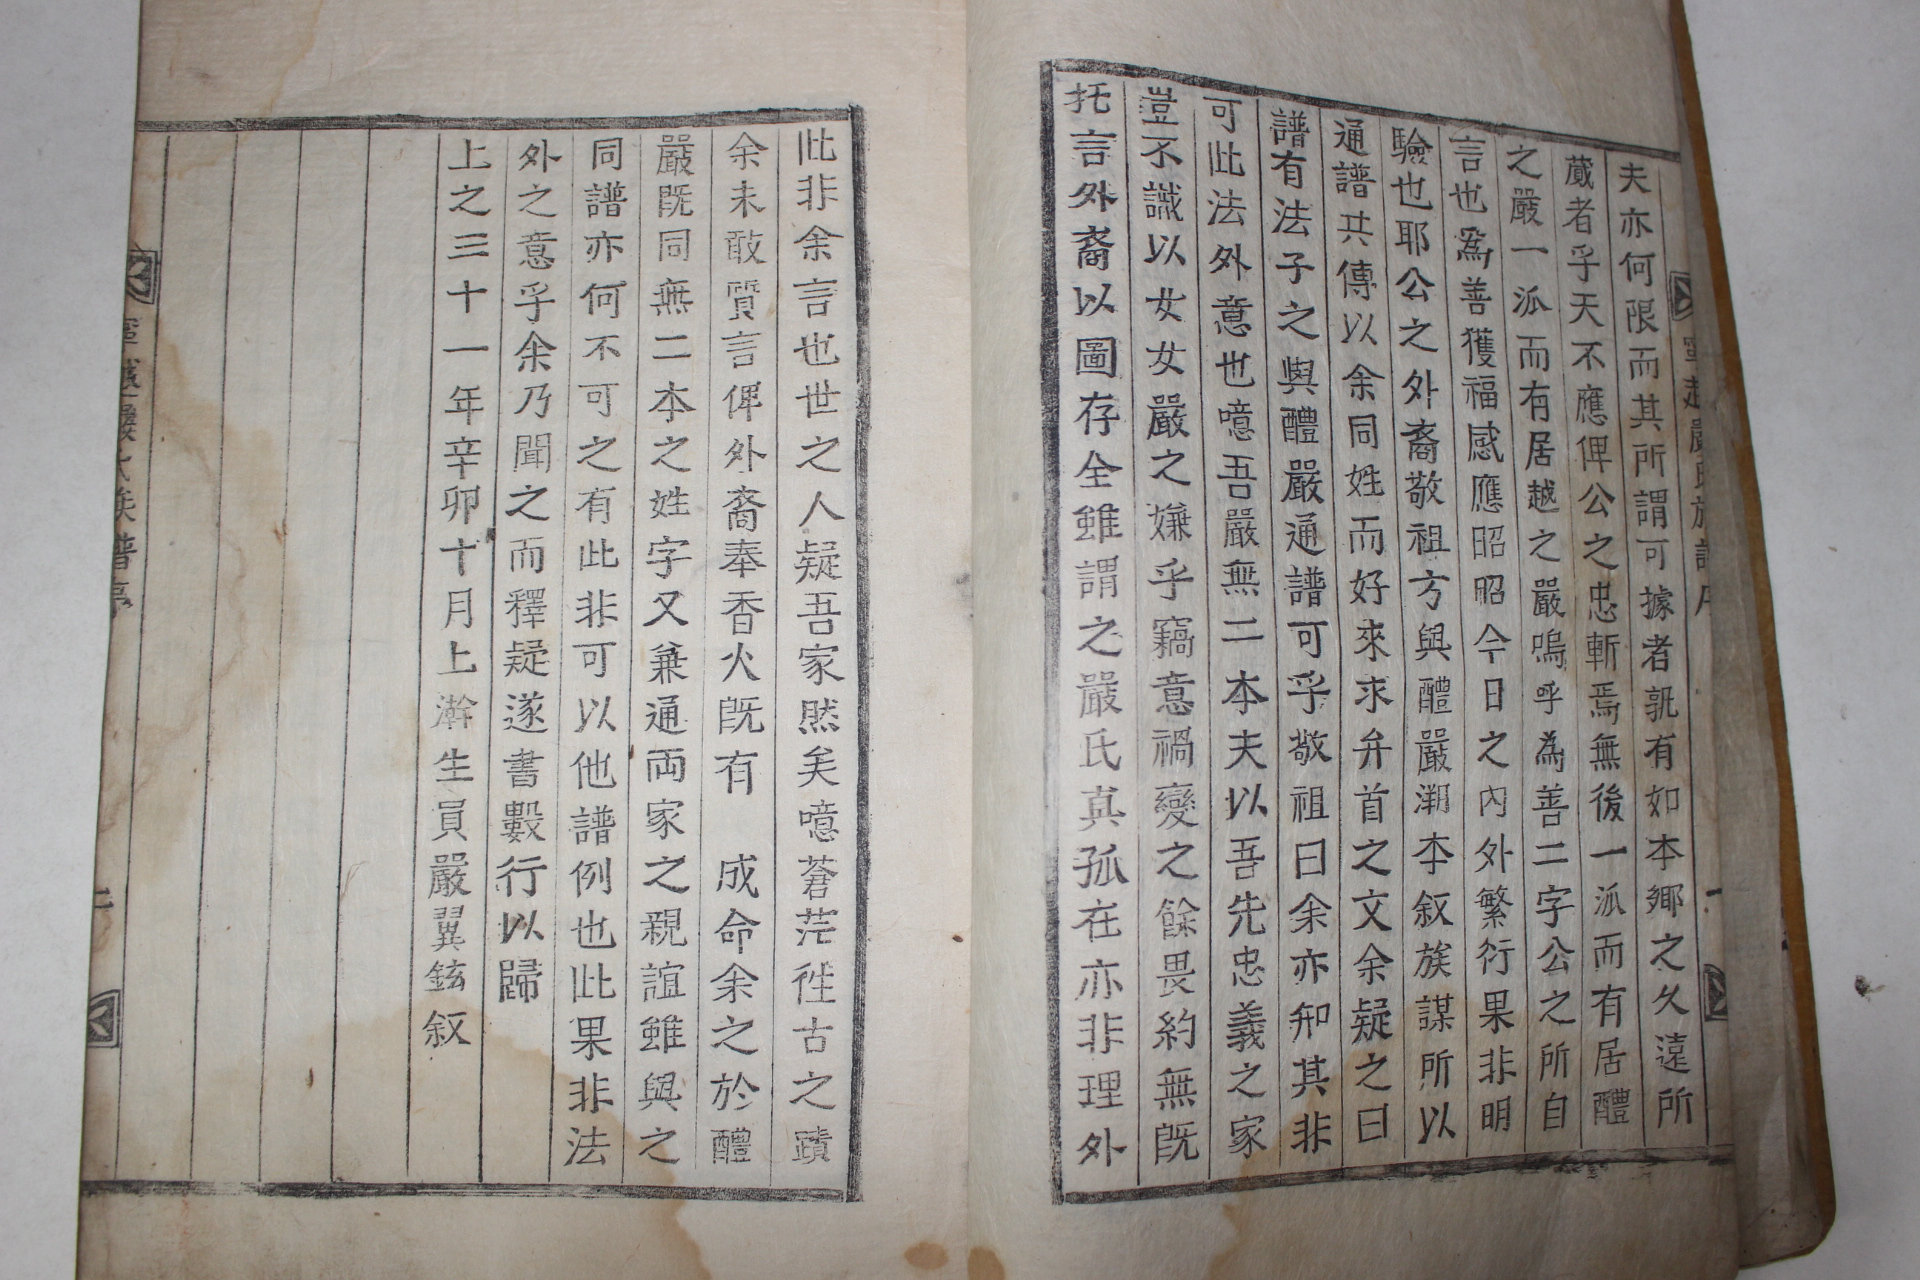 夫亦何限而其所謂可據者孰有如本鄉之久遠所
蔵者乎天不應俾公之忠斬焉無後一派而有居醴
之嚴一派而有居越之嚴嗚呼為善二字公之所自
言也爲善獲福感應昭昭今日之內外繁衍果非明
驗也耶公之外裔敬祖方與醴嚴溯本叙族謀所以
通譜共傳以余同姓而好來求弁首之文余疑之曰
譜有法子之與醴嚴通譜可乎敬祖曰余亦知其非
可此法外意也噫吾嚴無二本夫以吾先忠義之家
豈不識以女女嚴之嫌乎竊意禍變之餘畏約無既
托言外裔以圖存全雖謂之嚴氏真孤在亦非理外
此非余言也世之人疑吾家然矣噫蒼茫徃古之蹟
余未敢質言俾外裔奉香火既有 成命余之於醴
嚴既同無二本之姓字又兼通両家之親誼雖與之
同譜亦何不可之有此非可以他譜例也此果非法
外之意乎余乃聞之而釋疑遂書數行以歸
上之三十一年辛卯十月上澣生員嚴翼鉉叙